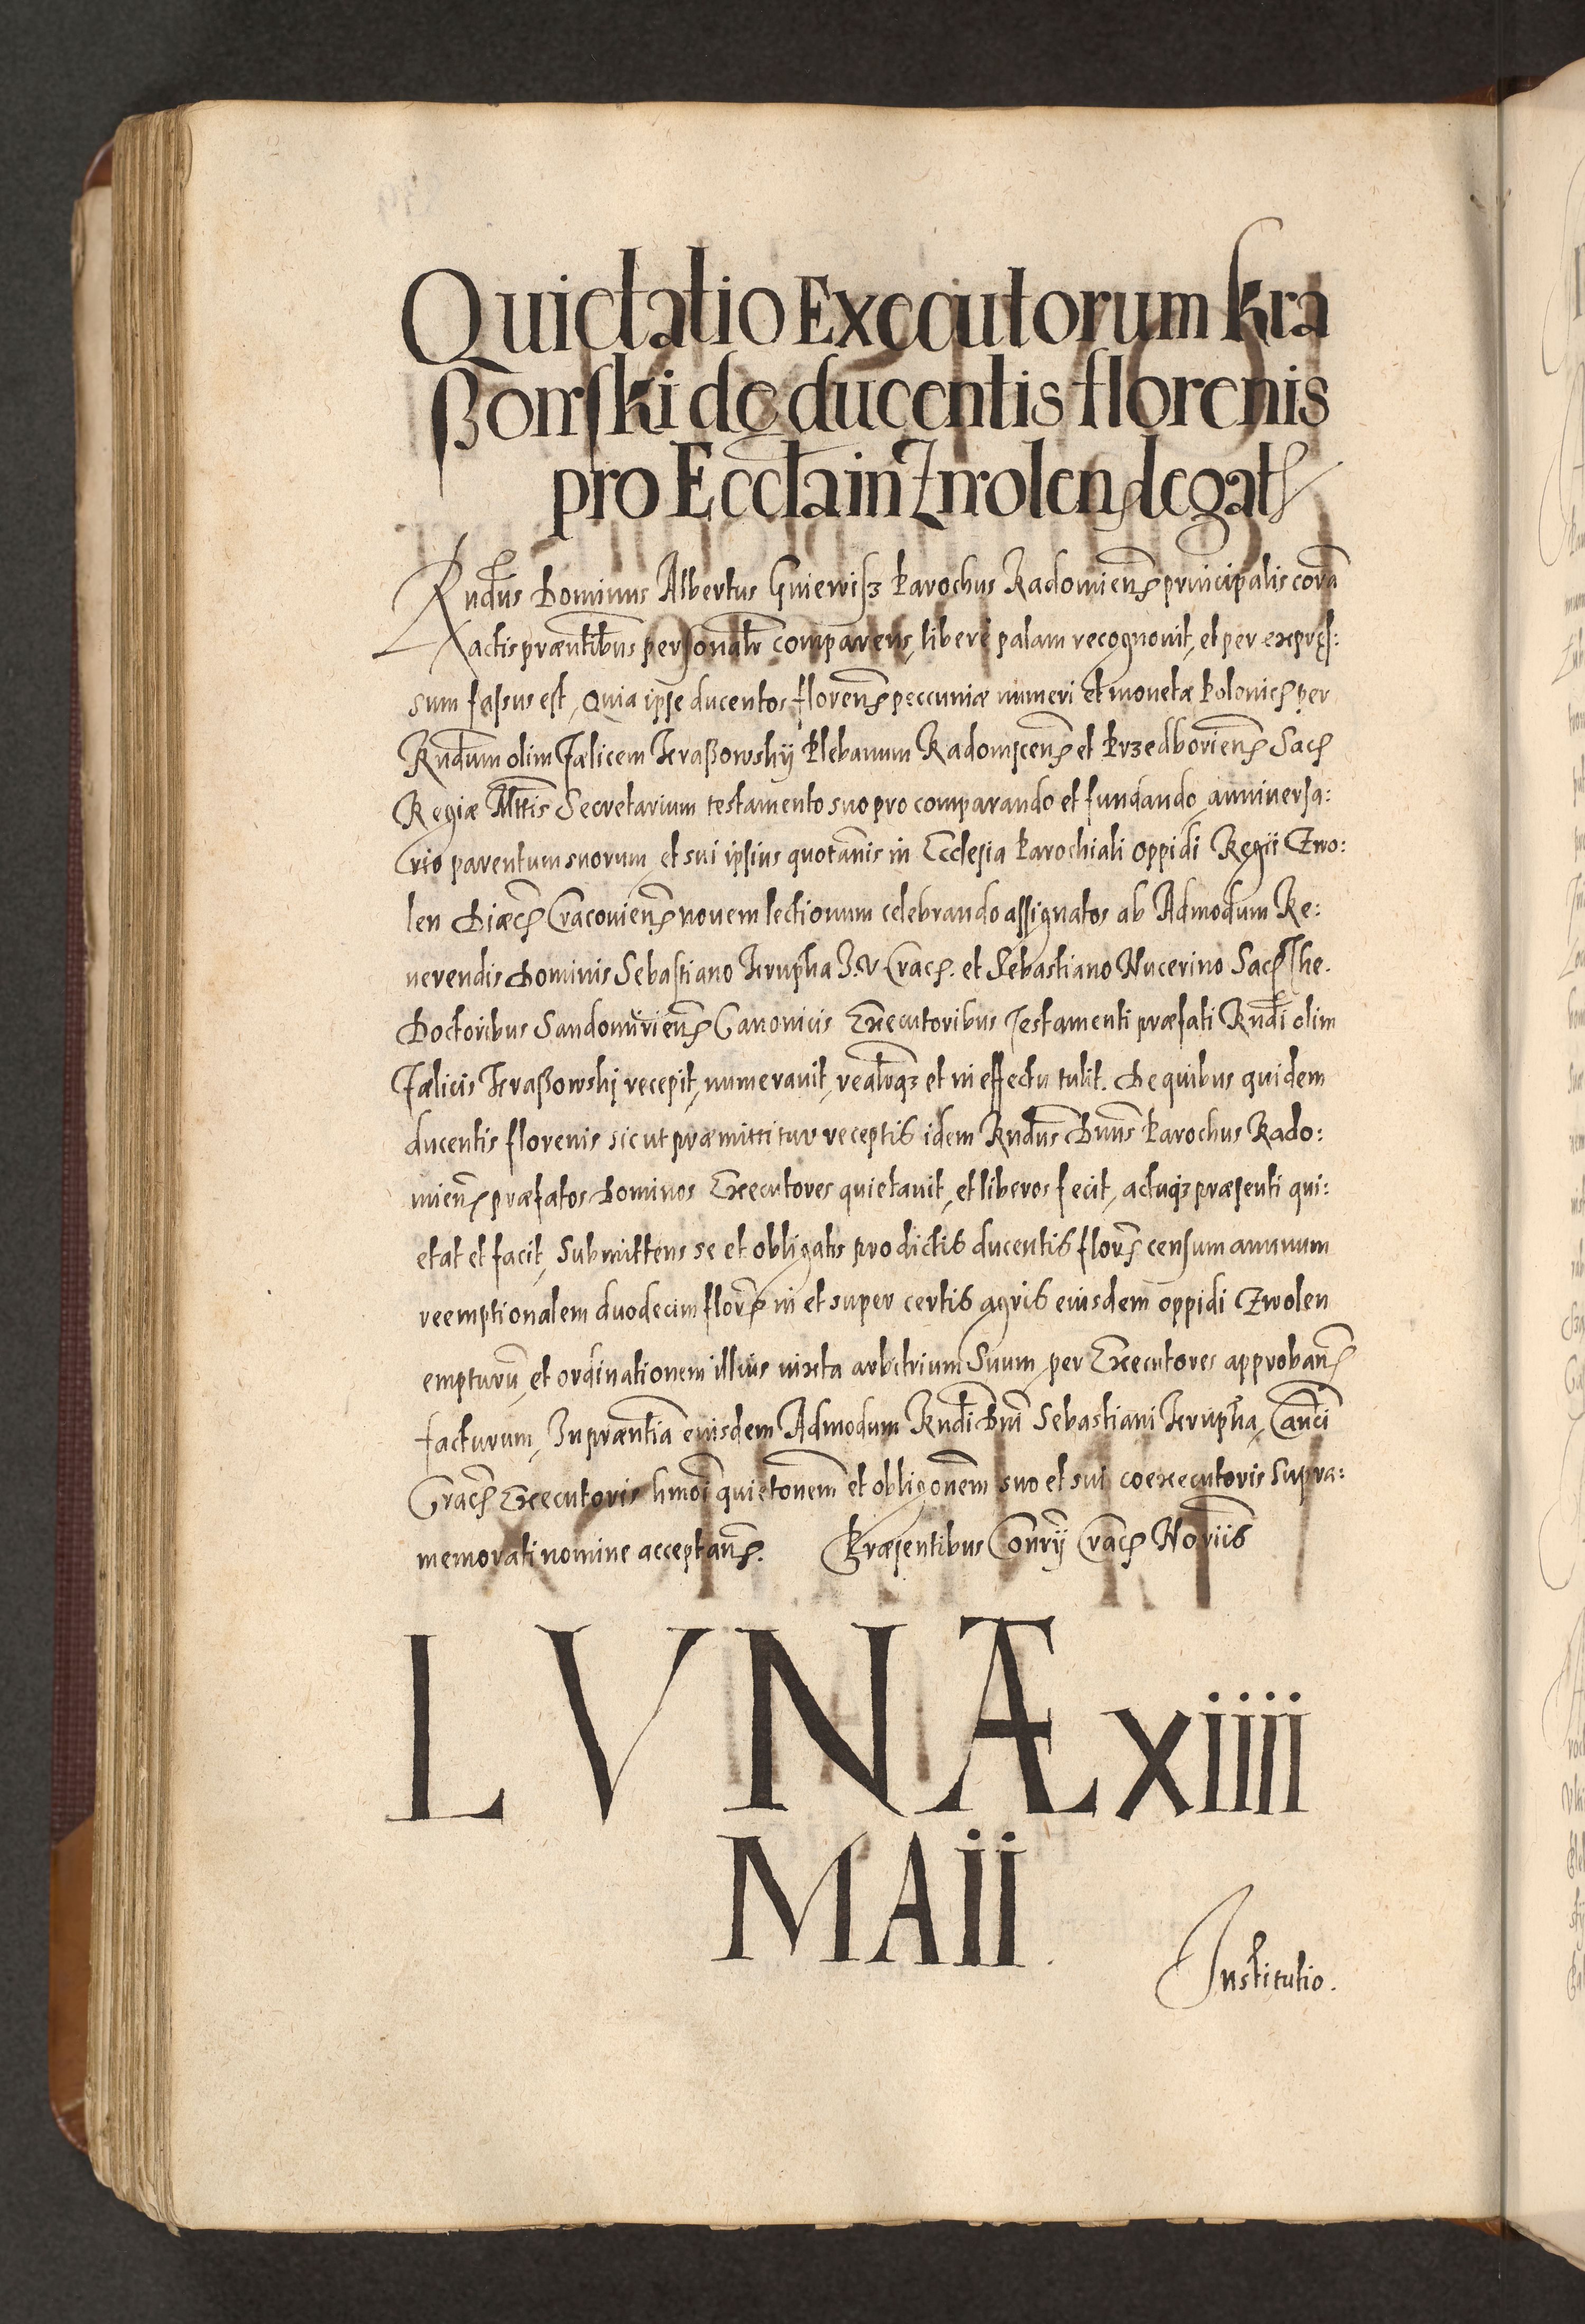 Quietatio Executorum Kra
ßowski de ducentis florenis
pro Eccła in Zwoleń legat
Rndus Dominus Albertus Gniewisz Parochus Radomień principalis corā
actis præntibus personalr comparens, libere palam recognouit, et per expręs:
sum fassus est, Quia ipse ducentos floreń peccuniæ numeri et monetæ Polonic per
Rndum olim Fælicem Kraßowskÿ Plebanum Radomsceń et Przedborień Sac
Regiæ Mttis Secretarium testamento suo pro comparando et fundando anniuersa:
rio parentum suorum et sui ipsius quotānis in Ecclesia Parochiali oppidi Regii Zwo:
len Diæc Cracouień nouem lectionum celebrando assignatos ab Admodum Re:
uerendis Dominis Sebastiano Krupka J. V. Crac. et Sebastiano Nucerino Sac The.
Doctoribus Sandomirień Canonicis Executoribus Testamenti præfati Rndi olim
Fælicis Kraßowskj recepit, numerauit, realrqz et in effectu tulit. De quibus quidem
ducentis florenis sicut præmittitur receptis idem Rndus Dnus Parochus Rado:
mień præfatos Dominos Executores quietauit, et liberos fecit, actuqz præsenti qui:
etat et facit, Submittens se et obligatis pro dictis ducentis flor censum annuum
reemptionalem duodecim flor in et super certis agris eiusdem oppidi Zwolen
empturū, et ordinationem illius iuxta arbitrium Suum per Executores approbań
facturum, In præntia eiusdem Admodum Rndi Dni Sebastiani Krupka, Canci
Crac Executoris hmoi quietonem et obligonem suo et sui coexecutoris supra:
memorati nomine acceptań. Præsentibus Conrÿ Crac Noriis
LVNÆ xiiii
MAii.
Institutio.